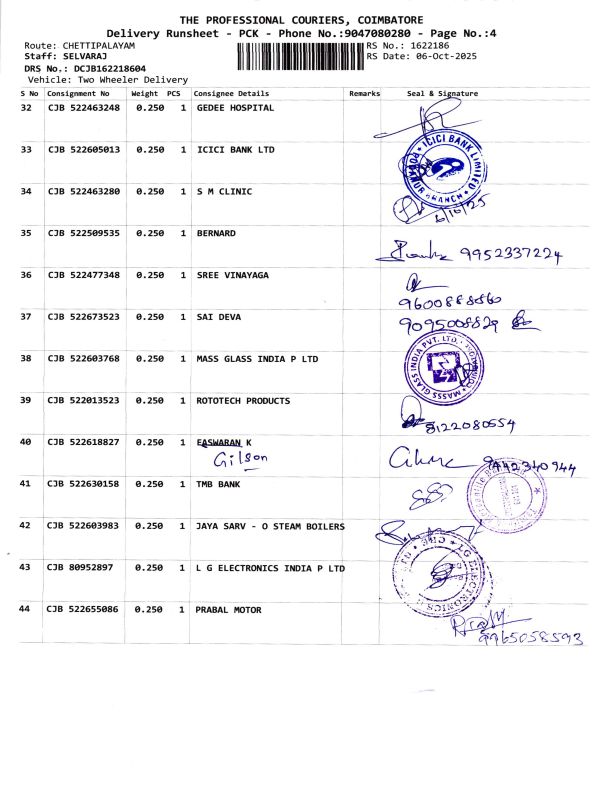 THE PROFESSIONAL COURIERS, COIMBATORE
Delivery Runsheet - PCK - Phone No.:9047080280 - Page No.:4
Route: CHETTIPALAYAM RS No.: 1622186
Staff: SELVARAJ RS Date: 06-Oct-2025
DRS No.: DCJB162218604
Vehicle: Two Wheeler Delivery
S No Consignment No Weight PCS Consignee Details Remarks Seal & Signature
32 CJB 522463248 0.250 1 GEDEE HOSPITAL
33 CJB 522605013 0.250 1 ICICI BANK LTD
ICICI BANK LIMITED
BRANCH
34 CJB 522463280 0.250 1 S M CLINIC
6/10/25
35 CJB 522509535 0.250 1 BERNARD
9952337224
36 CJB 522477348 0.250 1 SREE VINAYAGA
9600888860
37 CJB 522673523 0.250 1 SAI DEVA
9095008829
38 CJB 522603768 0.250 1 MASS GLASS INDIA P LTD
MASSS GLASS INDIA PVT. LTD.
39 CJB 522013523 0.250 1 ROTOTECH PRODUCTS
8122080554
40 CJB 522618827 0.250 1 EASWARAN K
Gilson
9442340944
41 CJB 522630158 0.250 1 TMB BANK
42 CJB 522603983 0.250 1 JAYA SARV - O STEAM BOILERS
43 CJB 80952897 0.250 1 L G ELECTRONICS INDIA P LTD
LG ELECTRONICS
44 CJB 522655086 0.250 1 PRABAL MOTOR
9965058593